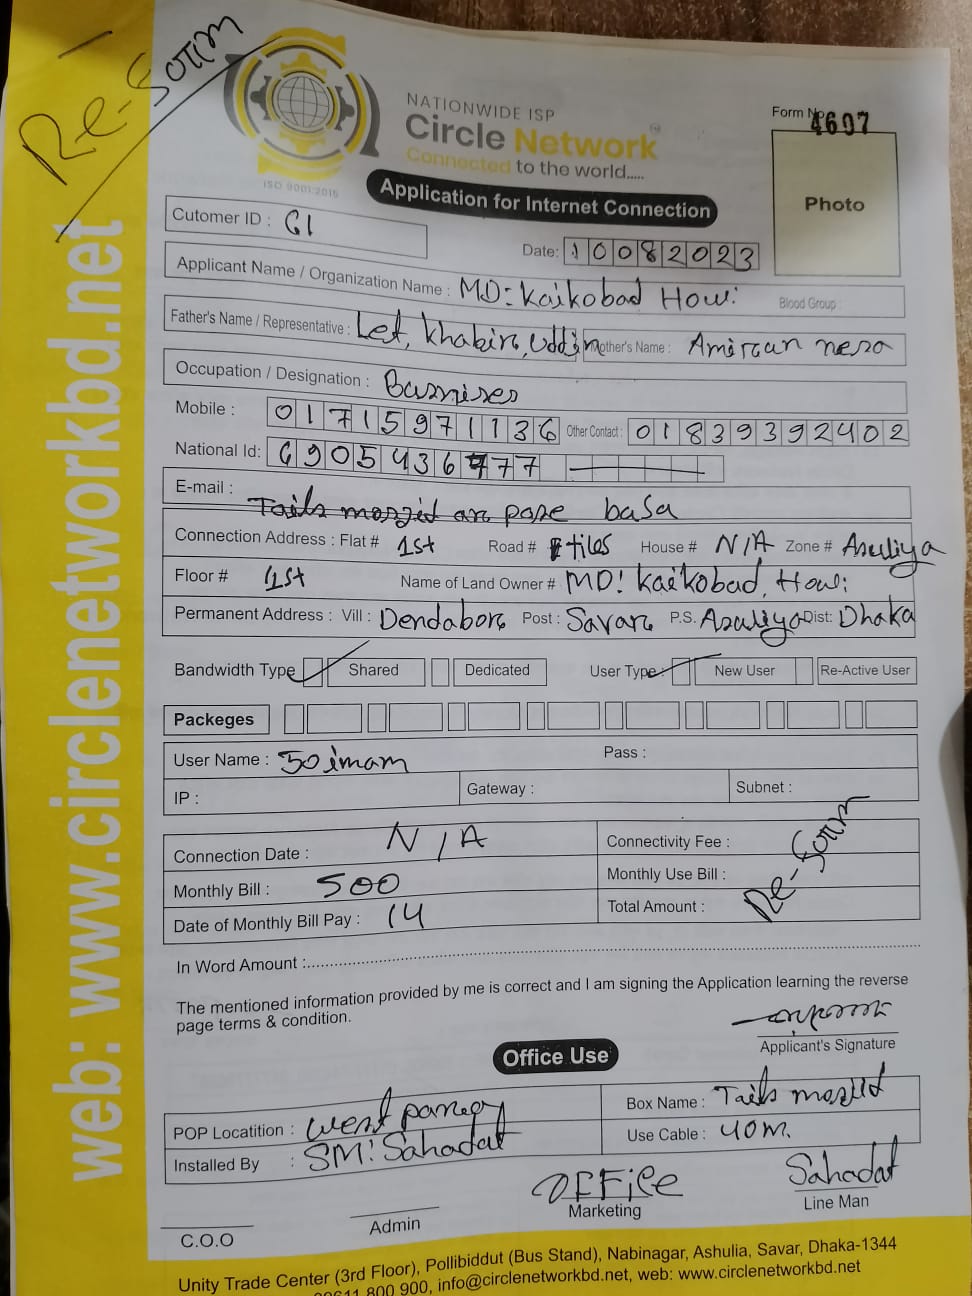 Re-Soram
NATIONWIDE ISP
Circle Network
Connected to the world.....
ISO 9001:2015
Form No 4607
Photo
Application for Internet Connection
Cutomer ID : C1
Date: 10082023
Applicant Name / Organization Name : MD: Kaikobad Howi
Blood Group :
Father's Name / Representative : Let, Khabir, Uddin Mother's Name : Amircan nesa
Occupation / Designation :
Mobile : 01715971136 Other Contact : 01839392402
National Id: 6905436777
E-mail :
Tails mosjid ar pase basa
Connection Address : Flat # 1st Road # tiles House # N/A Zone # Asuliya
Floor # 1st Name of Land Owner # MD! Kaikobad, Howi
Permanent Address : Vill : Dendabor Post : Savar P.S. Asuliya Dist: Dhaka
Bandwidth Type Shared Dedicated User Type: New User Re-Active User
Packeges
User Name : 50imam Pass :
IP : Gateway : Subnet :
Connection Date : N/A Connectivity Fee :
Monthly Bill : 500 Monthly Use Bill :
Date of Monthly Bill Pay : 14 Total Amount :
Re-Soram
In Word Amount :
The mentioned information provided by me is correct and I am signing the Application learning the reverse
page terms & condition.
Applicant's Signature
Office Use
POP Locatition : west Box Name : Tails mosjid
Installed By : SM! Sahadat Use Cable : 40m.
OFFice Sahadat
C.O.O Admin Marketing Line Man
Unity Trade Center (3rd Floor), Pollibiddut (Bus Stand), Nabinagar, Ashulia, Savar, Dhaka-1344
800 900, info@circlenetworkbd.net, web: www.circlenetworkbd.net
web: www.circlenetworkbd.net